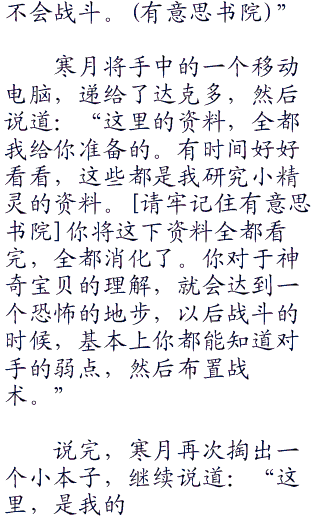 不会战斗。(有意思书院)”
寒月将手中的一个移动
电脑，递给了达克多，然后
说道：“这里的资料，全都
我给你准备的。有时间好好
看看，这些都是我研究小精
灵的资料。[请牢记住有意思
书院]你将这下资料全都看
完，全都消化了。你对于神
奇宝贝的理解，就会达到一
个恐怖的地步，以后战斗的
时候，基本上你都能知道对
手的弱点，然后布置战
术。”
说完，寒月再次掏出一
个小本子，继续说道：“这
里，是我的